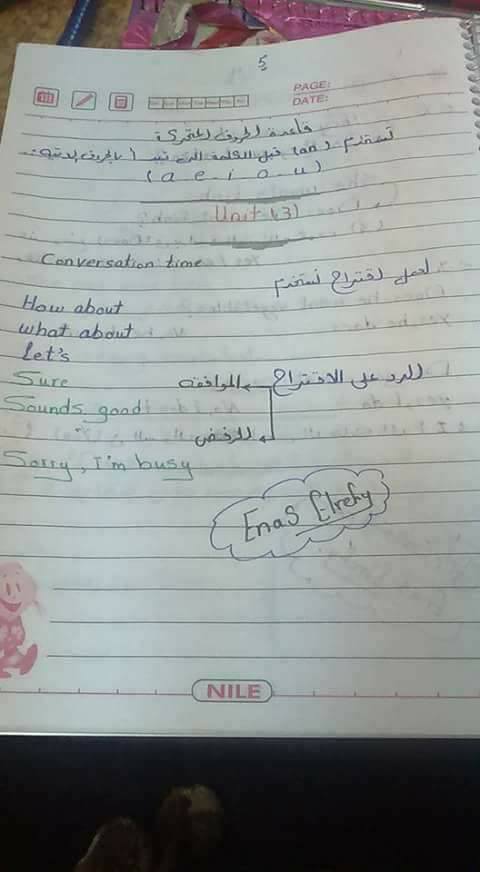 5
PAGE:
DATE:
قاعدة الحروف المتحركة
تستخدم (an) قبل الكلمة التى تبدأ بالحروف الاتيه:
(a e - i - o - u)
Unit (3)
Conversation time
لعمل اقتراح نستخدم
How about
what about
Let's
للرد على الاقتراح الموافقه
Sure
Sounds good
للرفض
Sorry, I'm busy
Enas Elrefy
NILE